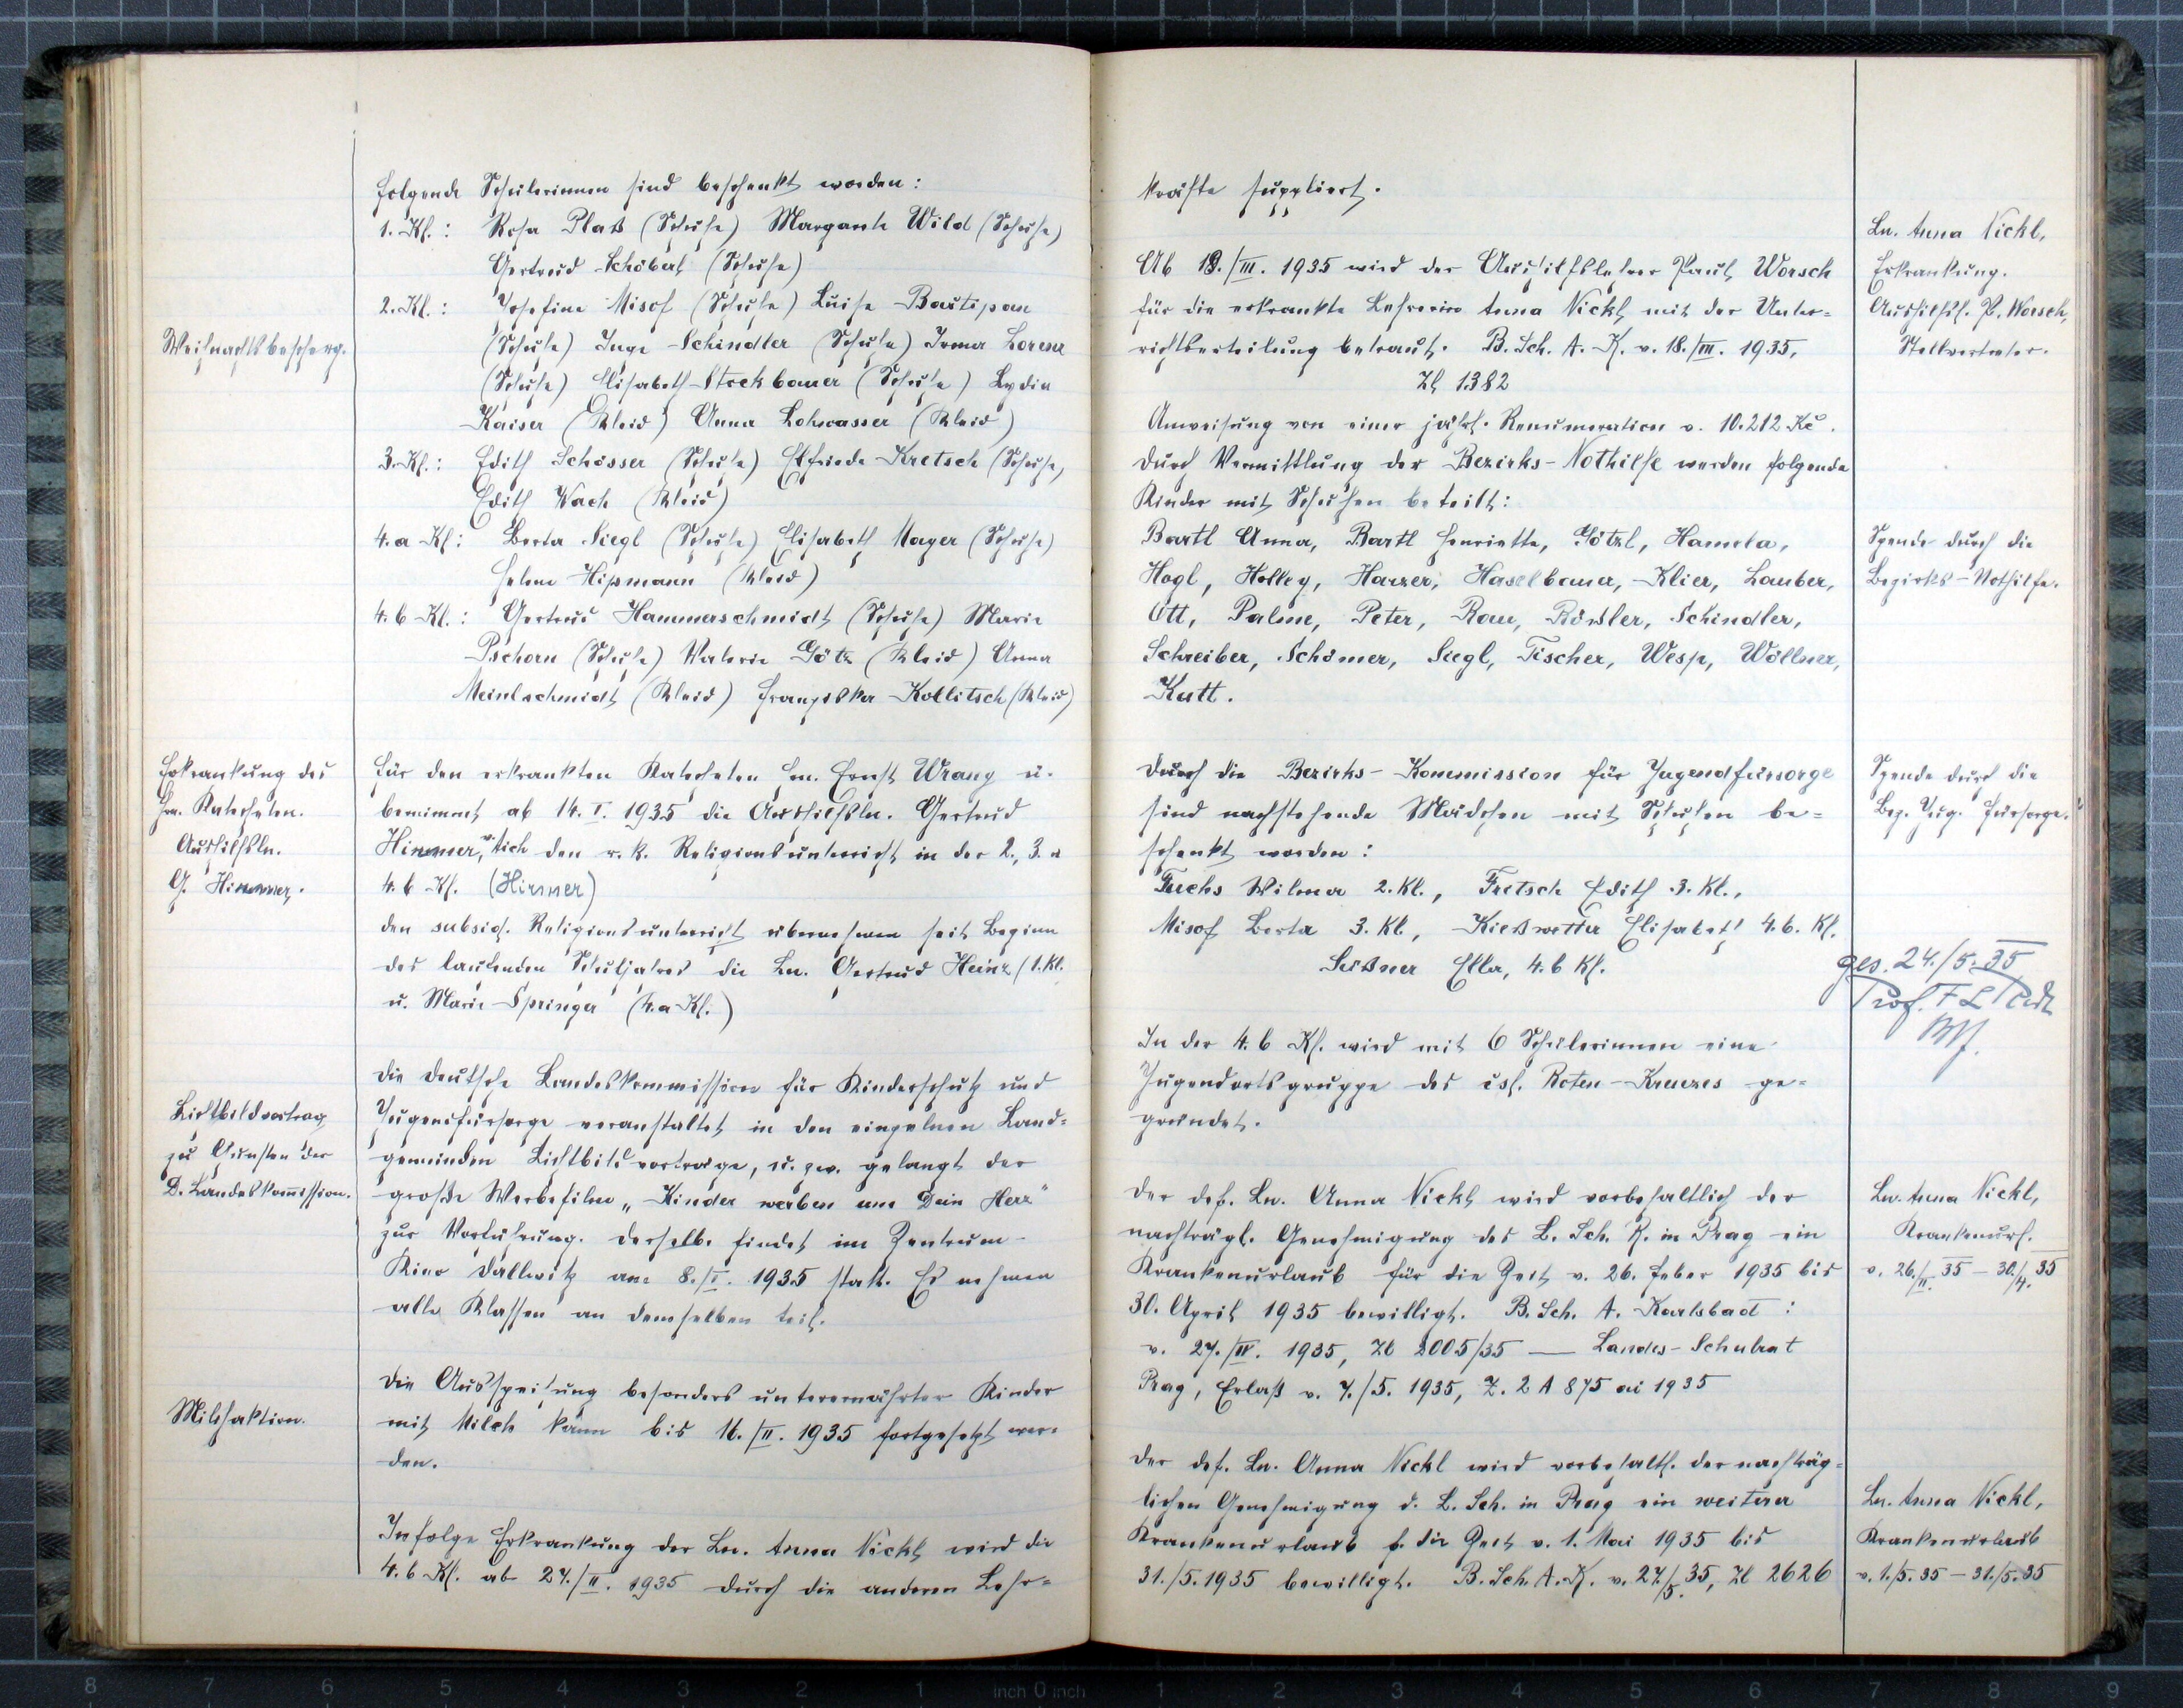 Folgende Schülerinnen sind beschenkt worden:
1. Kl.: Rosa Plaß (Schuhe) Margarete Wild (Schuhe)
Gertrud Schöberl (Schuhe)
2. Kl.: Josefine Misof (Schuhe) Luise Bartipan
Weihnachtsbescherg.
(Schuhe) Inge Schindler (Schuhe) Irma Lorenz
(Schuhe) Elisabeth Stockbauer (Schuhe) Lydia
Kaiser (Kleid) Anna Lohwasser (Kleid)
3. Kl.: Edith Schösser (Schuhe) Elfriede Kretsch (Schuhe,
Edith Wach (Kleid)
4.a Kl: Berta Siegl (Schuhe) Elisabeth Mayer (Schuhe)
Helene Hipmann (Kleid)
4.b Kl.: Gertrud Hammerschmidt (Schuhe) Marie
Pschorn (Schuhe) Valerie Götz (Kleid) Anna
Meinlschmidt (Kleid) Franziska Kollitsch (Kleid)
Erkrankung des
Hrn. Katecheten.
Aushilfsln.
G. Hirnmer.
Für den erkrankten Katecheten Hrn. Ernst Wrany ü-
bernimmt ab 14. I. 1935 die Aushilfsln. Gertrud
Hirnmer, den r. k. Religionsunterricht in der 2., 3. u
4. b Kl. (Hirnmer)
den subsid. Religionsunterricht übernehmen seit Beginn
des laufenden Schuljahres die Ln. Gertrud Heinz (1. Kl.
u. Marie Springer (4.a Kl.)
Lichtbildvortrag
zu Gunsten der
D. Landeskom̅ission.
Die deutsche Landeskommission für Kinderschutz und
Jugendfürsorge veranstaltet in den einzelnen Land-
gemeinden Lichtbildvorträge, u. zw. gelangt der
große Werbefilm „Kinder werben um Dein Herz“
zur Vorführung. Derselbe findet im Zentrum-
Kino Dallwitz am 8./I. 1935 statt. Es nehmen
alle Klassen an demselben teil.
Milchaktion.
Die Ausspeisung besonders unterernährter Kinder
mit Milch kann bis 16./II. 1935 fortgesetzt wer-
den.
Infolge Erkrankung der Ln. Anna Nickl wird die
4. b Kl. ab 27./II. 1935 durch die anderen Lehr-
kräfte suppliert.
Ab 19./III. 1935 wird der Aushilfslehrer Paul Worsch
für die erkrankte Lehrerin Anna Nickl mit der Unter-
richtserteilung betraut. B. Sch. A. K. v. 18./III. 1935,
Zl 1382
Ln. Anna Nickl,
Erkrankung.
Aushilfsl. P. Worsch,
Stellvertreter.
Anweisung von einer jährl. Renumeration v. 10.212 Kč.
Durch Vermittlung der Bezirks-Nothilfe werden folgende
Kinder mit Schuhen beteilt:
Bartl Anna, Bartl Henriette, Götzl, Hamela,
Hogl, Holley, Harzer, Haselbauer, Klier, Lauber,
Ott, Palme, Peter, Rau, Rössler, Schindler,
Schreiber, Schömer, Siegl, Tischer, Wesp, Wöllner,
Kutt.
Spende durch die
Bezirks-Nothilfe.
Durch die Bezirks-Kommission für Jugendfürsorge
sind nachstehende Mädchen mit Schuhen be-
schenkt worden:
Fuchs Wilma 2. Kl., Fretsch Edith 3. Kl.,
Misof Berta 3. Kl., Kießwetter Elisabeth 4. b. Kl.
Seßner Ella, 4. b Kl.
Spende durch die
Bez. Jug. Fürsorge.
ges. 24./5. 35
Prof. F L
In der 4. b Kl. wird mit 6 Schülerinnen eine
Jugendortsgruppe des čsl. Roten-Kreuzes ge-
gründet.
Der def. Ln. Anna Nickl wird vorbehaltlich der
nachträgl. Genehmigung des L. Sch. R. in Prag ein
Krankenurlaub für die Zeit v. 26. Feber 1935 bis
30. April 1935 bewilligt. B. Sch. A. Karlsbad:
v. 27./IV. 1935, Zl 2005/35 — Landes-Schulrat
Prag, Erlaß v. 7./5. 1935, Z. 2 A 875 ai 1935
Ln. Anna Nickl,
Krankenurl.
v. 26./II. 35 – 30./4. 35
Der def. Ln. Anna Nickl wird vorbehaltl. der nachträg-
lichen Genehmigung d. L. Sch. in Prag ein weiterer
Krankenurlaub f. die Zeit v. 1. Mai 1935 bis
31./5. 1935 bewilligt. B. Sch. A. K. v. 27./5. 35, Zl 2626
Ln. Anna Nickl,
Krankenurlaub
v. 1./5. 35 – 31./5. 35
8 7 6 5 4 3 2 1 inch 0 inch 1 2 3 4 5 6 7 8 9